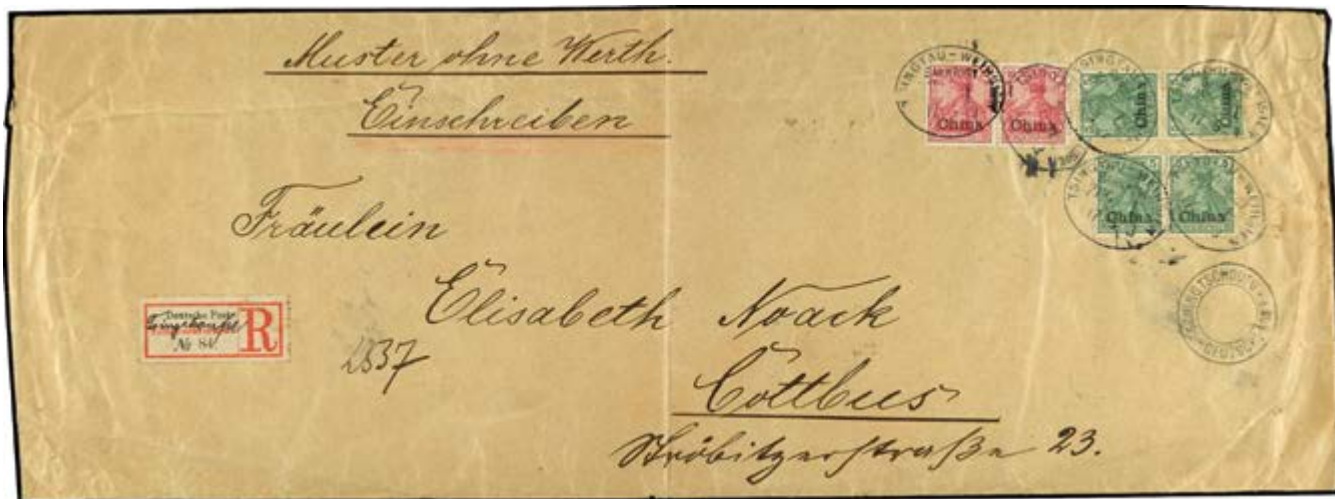 Muster ohne Werth.
Einschreiben
Fräulein
Elisabeth Noack
Cottbus
Ströbitzerstraße 23.
2537
Deutsche Post
№ 84
R
China
China
China
China
China
China
TSINGTAU-WEIHSIEN
TSINGTAU-WEIHSIEN